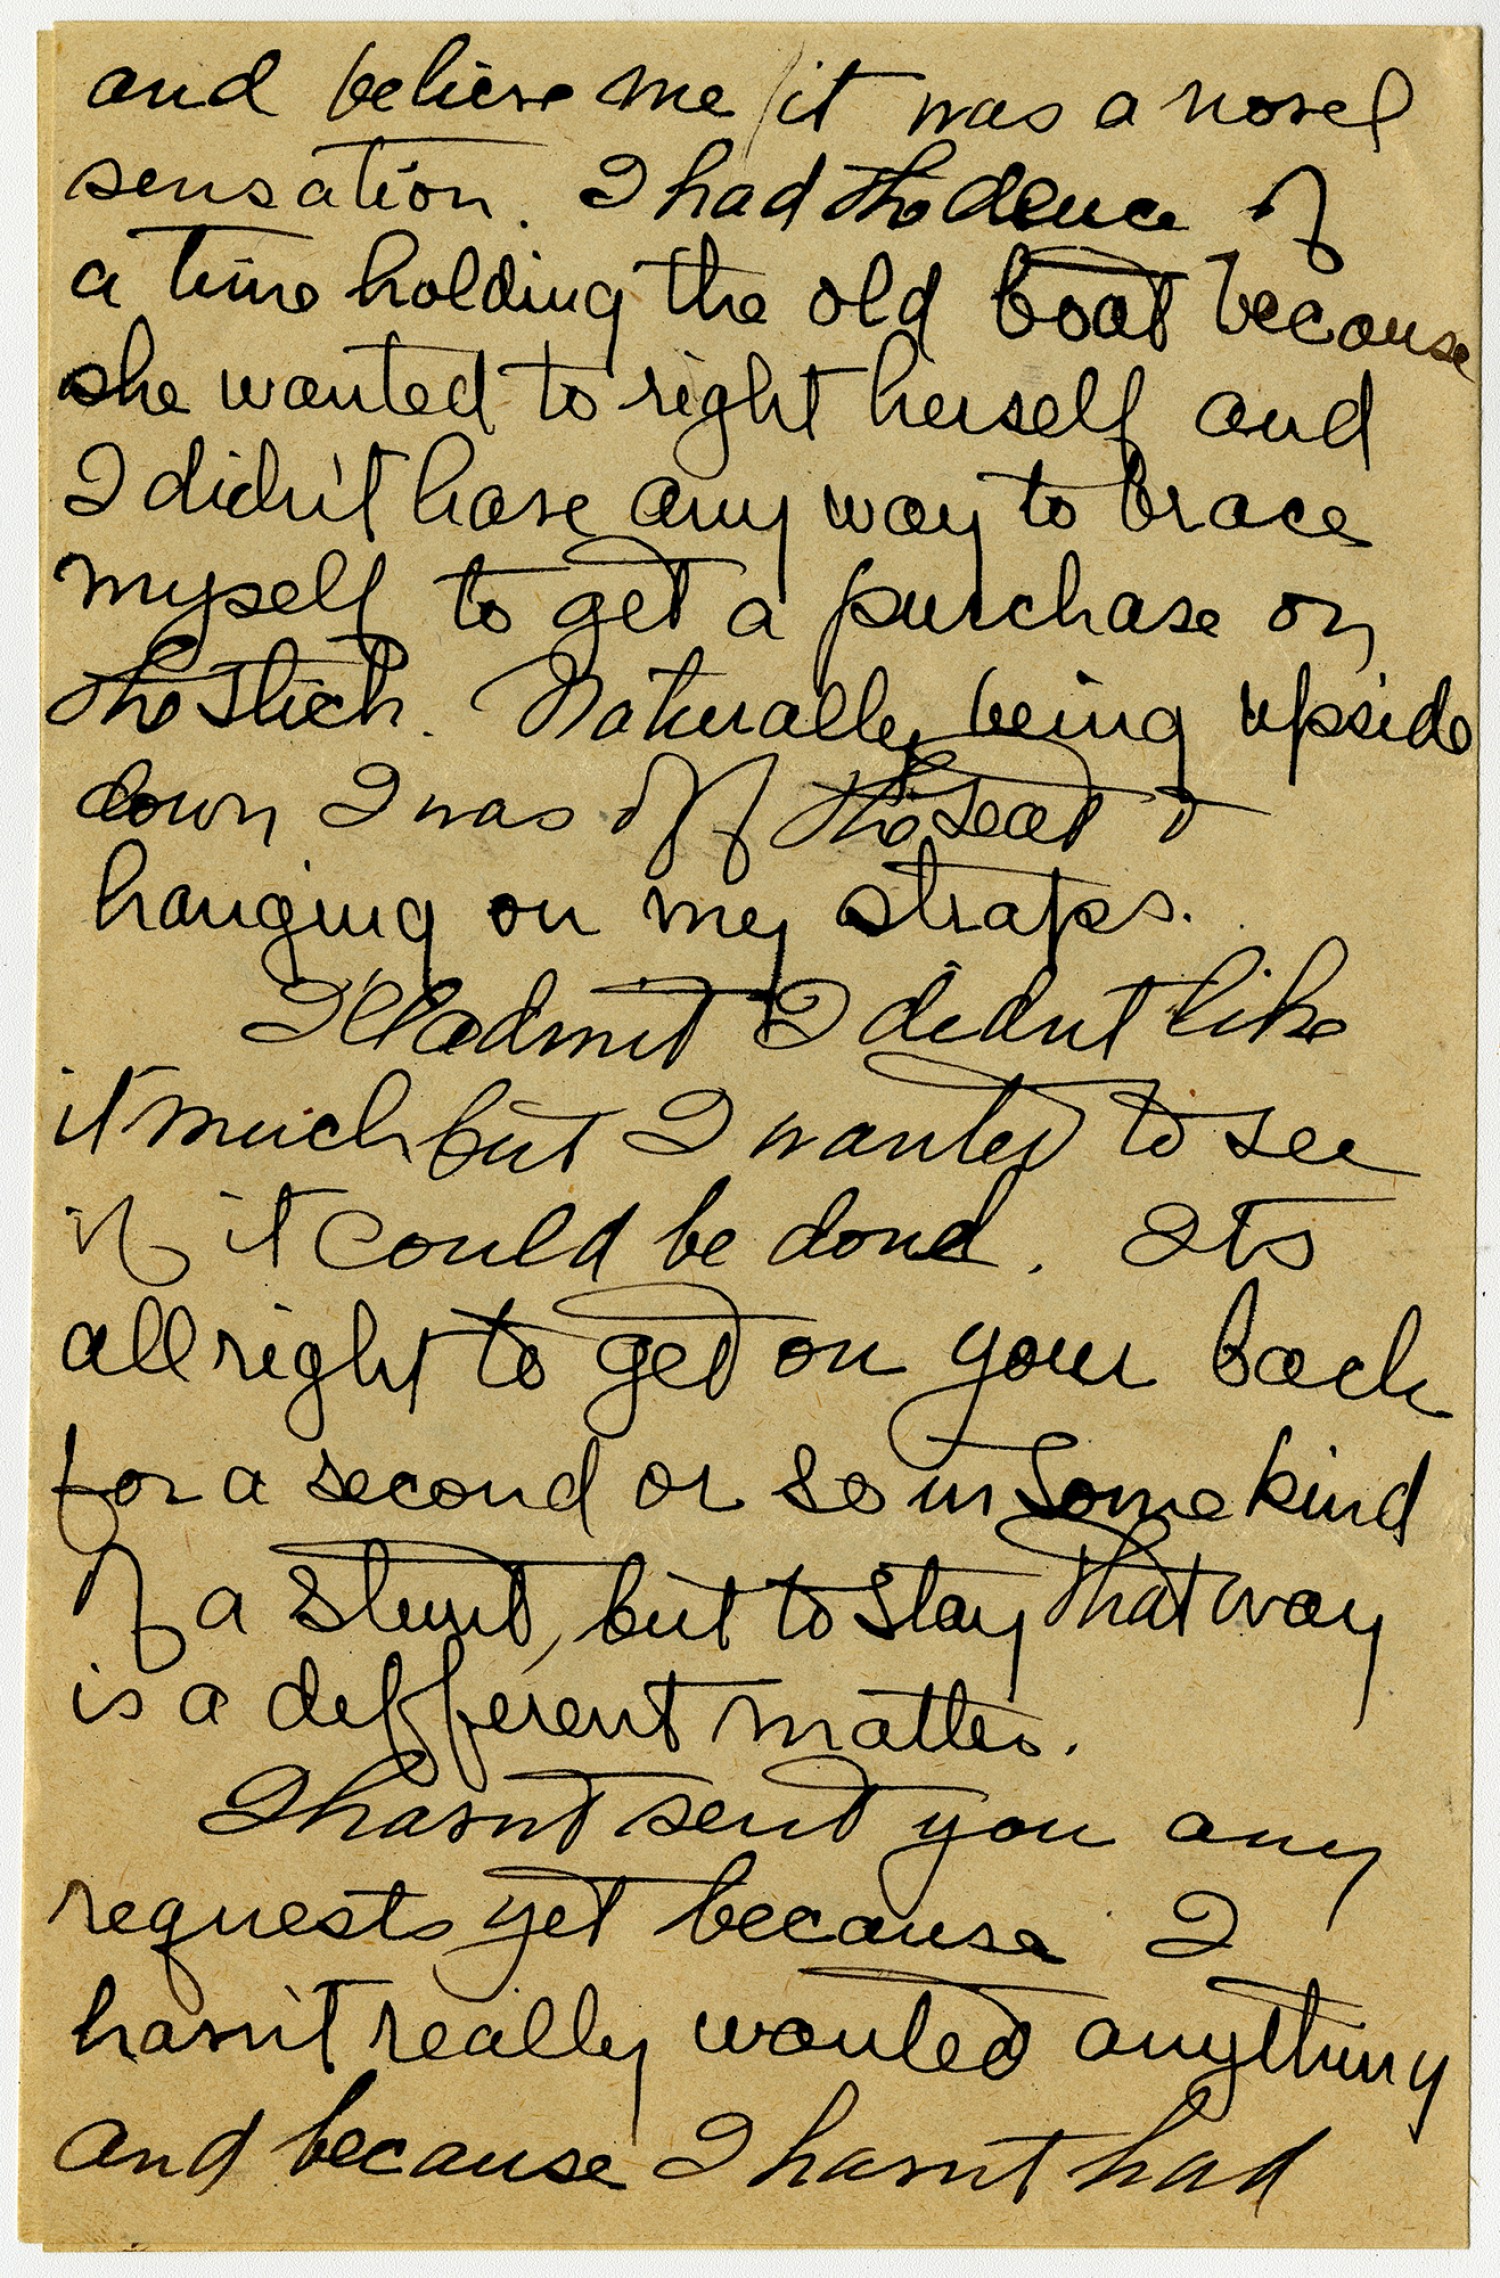 and believe me it was a novel
sensation. I had the deuce of
a time holding the old boat because
she wanted to right herself and
I didn't have any way to brace
myself to get a purchase on
the stick. Naturally being upside
down I was off the seat &
hanging on my straps.
I'll admit I didn't like
it much but I wanted to see
if it could be done. Its
all right to get on your back
for a second or so in some kind
of a stunt, but to stay that way
is a different matter.
I havnt sent you any
requests yet because I
havn't really wanted anything
and because I havnt had